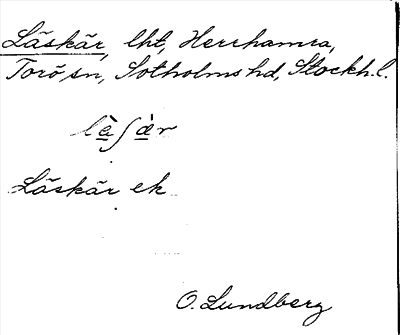 Läskär, lht, Herrhamra,
Torö sn, Sotholms hd, Stockh. l.
lὰ̠ʃὰ̠r
Läskär ek
O. Lundberg